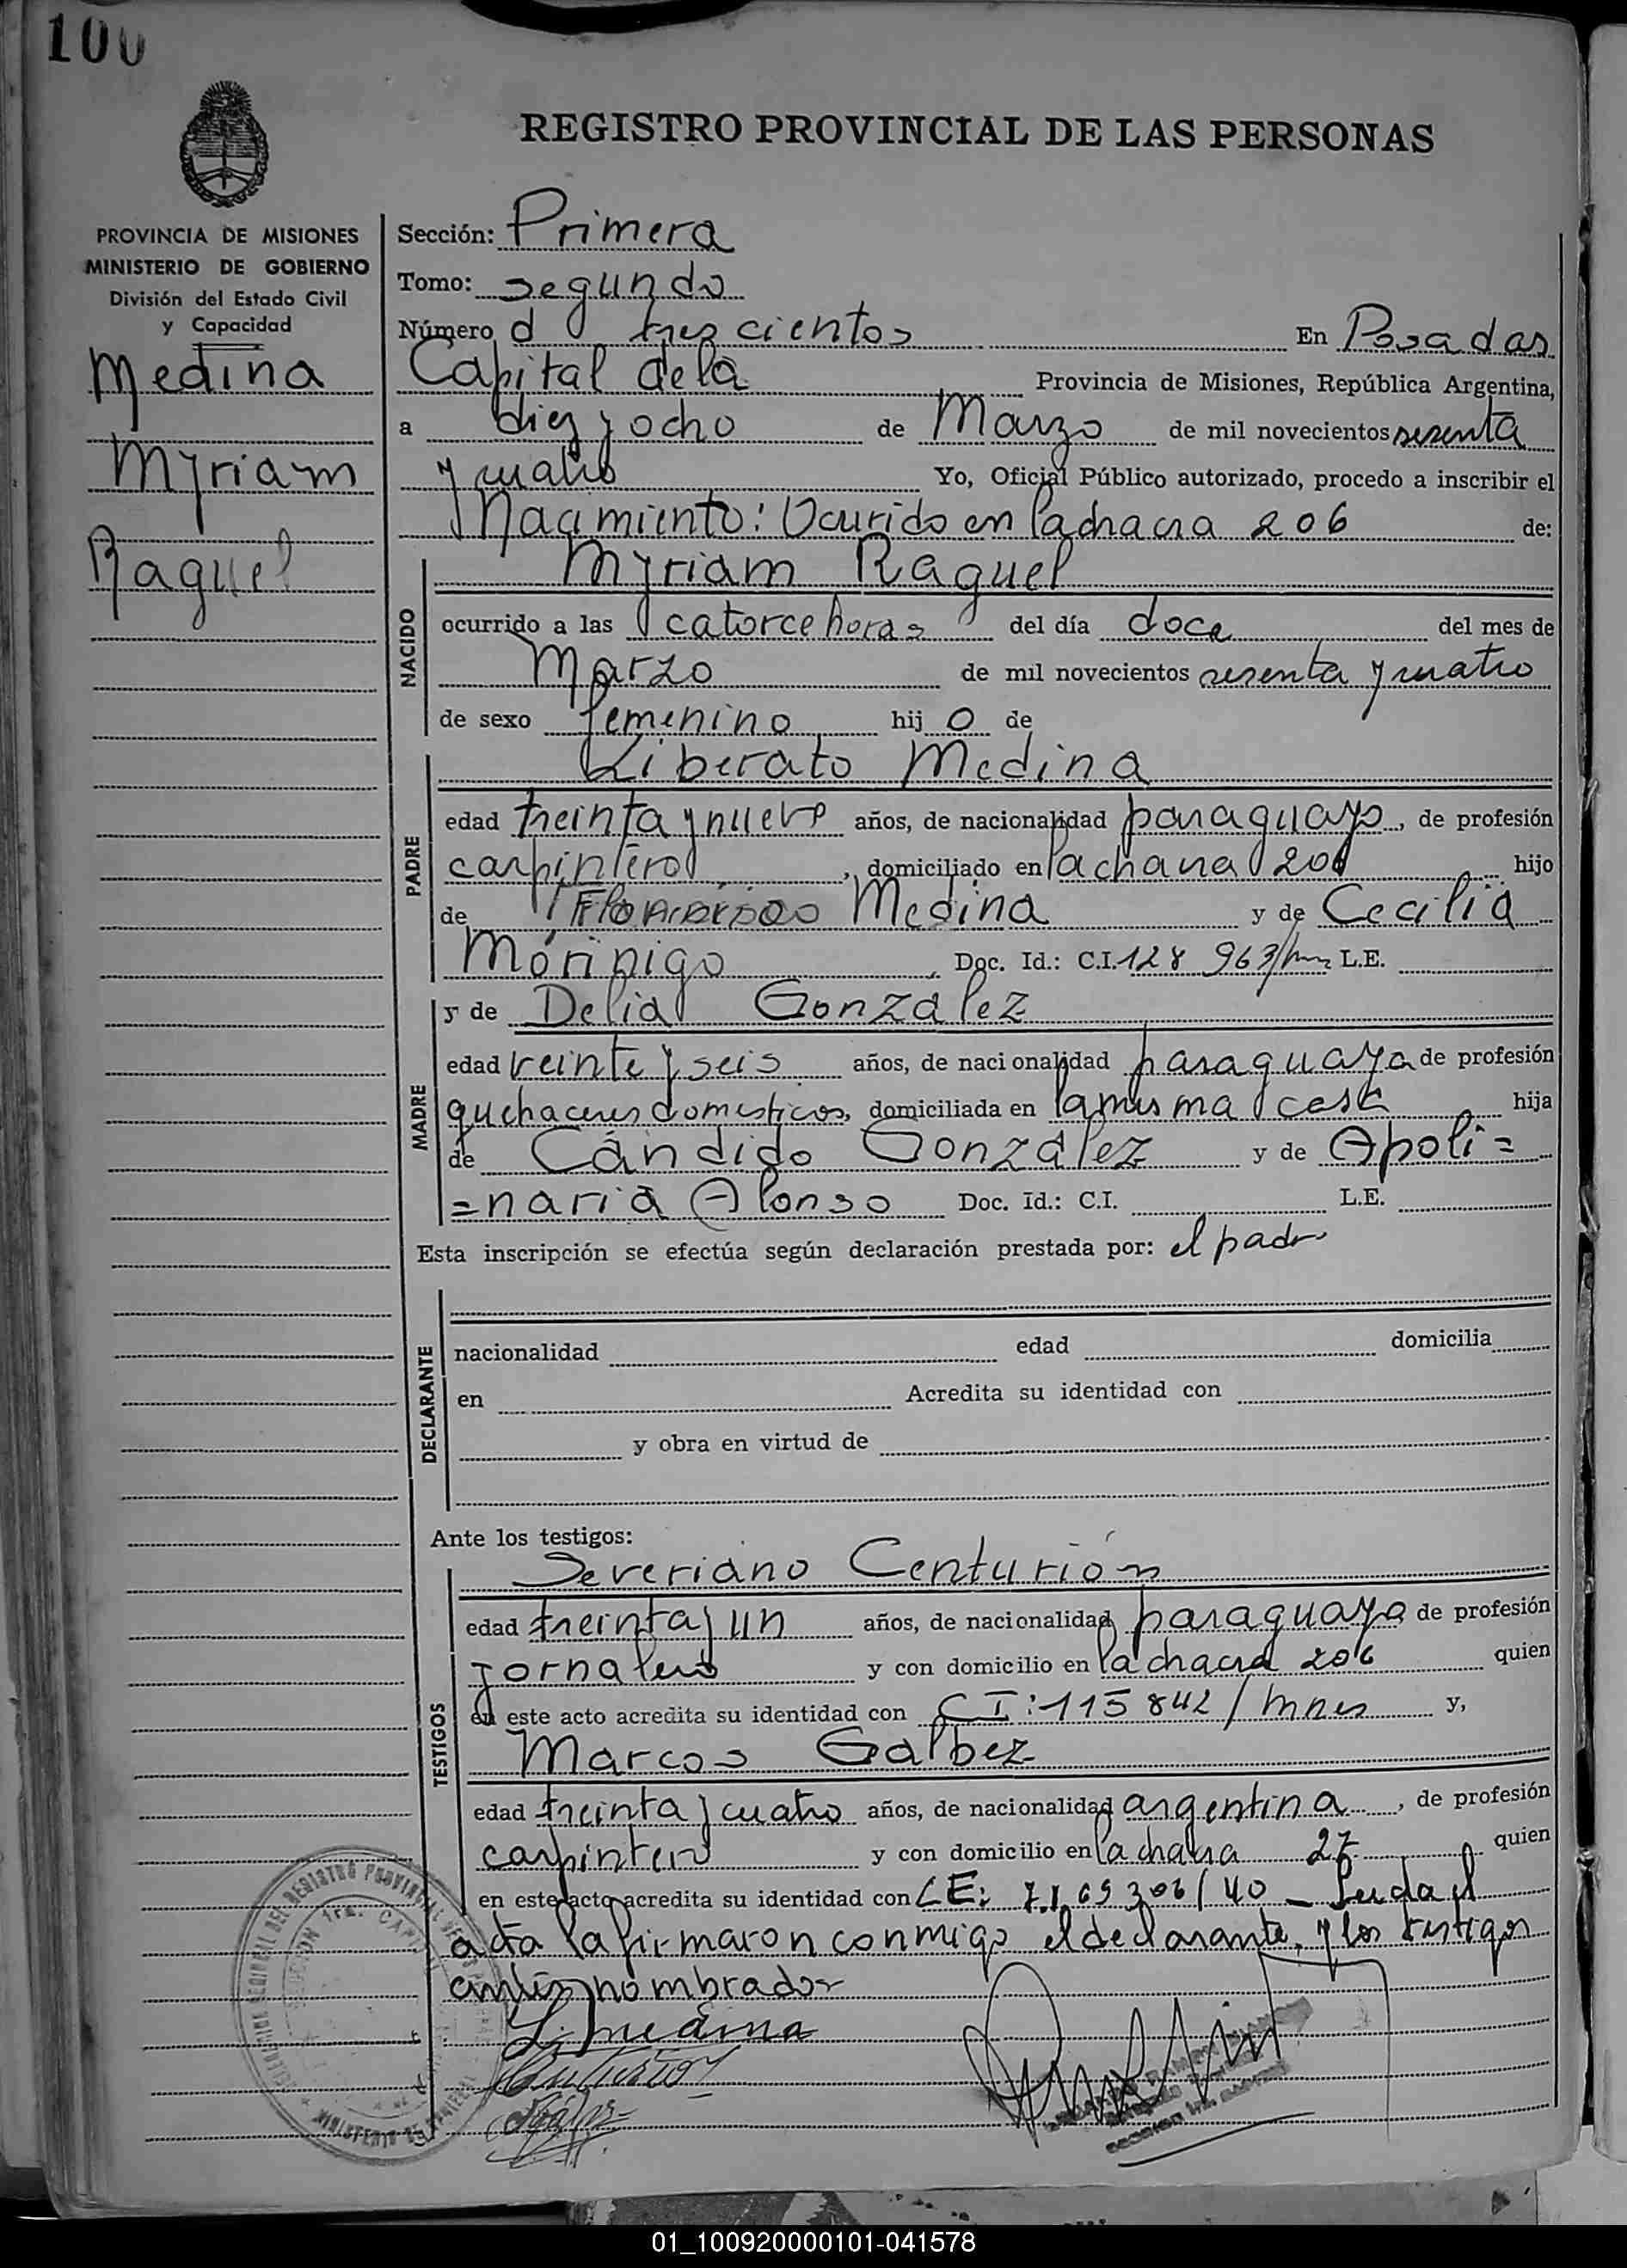 100
REGISTRO PROVINCIAL DE LAS PERSONAS
PROVINCIA DE MISIONES
MINISTERIO DE GOBIERNO
División del Estado Civil
y Capacidad
Medina
Myriam
Raquel
Sección: Primera
Tomo: segundo
Número trescientos En Posadas
Capital de la Provincia de Misiones, República Argentina,
a diez y ocho de Marzo de mil novecientos sesenta
y cuatro Yo, Oficial Público autorizado, procedo a inscribir el
Nacimiento: Ocurrido en la chacra 206 de:
NACIDO
Myriam Raquel
ocurrido a las catorce horas del día doce del mes de
Marzo de mil novecientos sesenta y cuatro
de sexo femenino hij o de
PADRE
Liberato Medina
edad treinta y nueve años, de nacionalidad paraguayo, de profesión
carpintero, domiciliado en la chacra 206 hijo
de Medina y de Cecilia
Morinigo Doc. Id.: C.I. 128 963/mnes L.E.
MADRE
y de Delia González
edad veinte y seis años, de nacionalidad paraguaya de profesión
quehaceres domesticos, domiciliada en la misma casa hija
de Cándido González y de Apoli=
=naria Alonso Doc. Id.: C.I. L.E.
Esta inscripción se efectúa según declaración prestada por: el padre
DECLARANTE
nacionalidad edad domicilia
en Acredita su identidad con
y obra en virtud de
Ante los testigos:
TESTIGOS
Severiano Centurión
edad treinta y un años, de nacionalidad paraguaya de profesión
jornalero y con domicilio en la chacra 206 quien
en este acto acredita su identidad con CI: 115 842/mnes y,
Marcos Galbez
edad treinta y cuatro años, de nacionalidad argentina, de profesión
carpintero y con domicilio en la chacra 27 quien
en este acto acredita su identidad con LE: Leida el
acta la firmaron conmigo el declarante, y los testigos
antes nombrados
L. Medina
Centurion
01_100920000101-041578